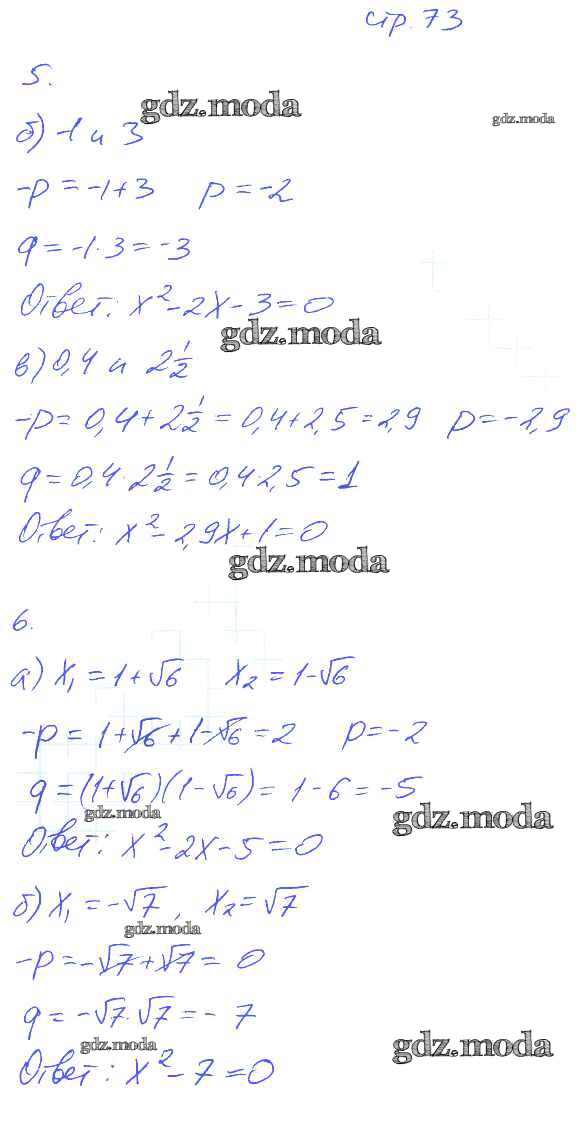 стр. 73
5.
gdz.moda
gdz.moda
б) -1 и 3
-p = -1+3   p = -2
q = -1·3 = -3
Ответ: x² - 2x - 3 = 0
gdz.moda
в) 0,4 и 2 1/2
-p = 0,4 + 2 1/2 = 0,4 + 2,5 = 2,9   p = -2,9
q = 0,4 · 2 1/2 = 0,4·2,5 = 1
Ответ: x² - 2,9x + 1 = 0
gdz.moda
6.
а) x₁ = 1+√6   x₂ = 1-√6
-p = 1+√6 + 1-√6 = 2   p = -2
q = (1+√6)(1-√6) = 1-6 = -5
gdz.moda
gdz.moda
Ответ: x² - 2x - 5 = 0
б) x₁ = -√7, x₂ = √7
gdz.moda
-p = -√7+√7 = 0
q = -√7·√7 = -7
gdz.moda
gdz.moda
Ответ: x² - 7 = 0